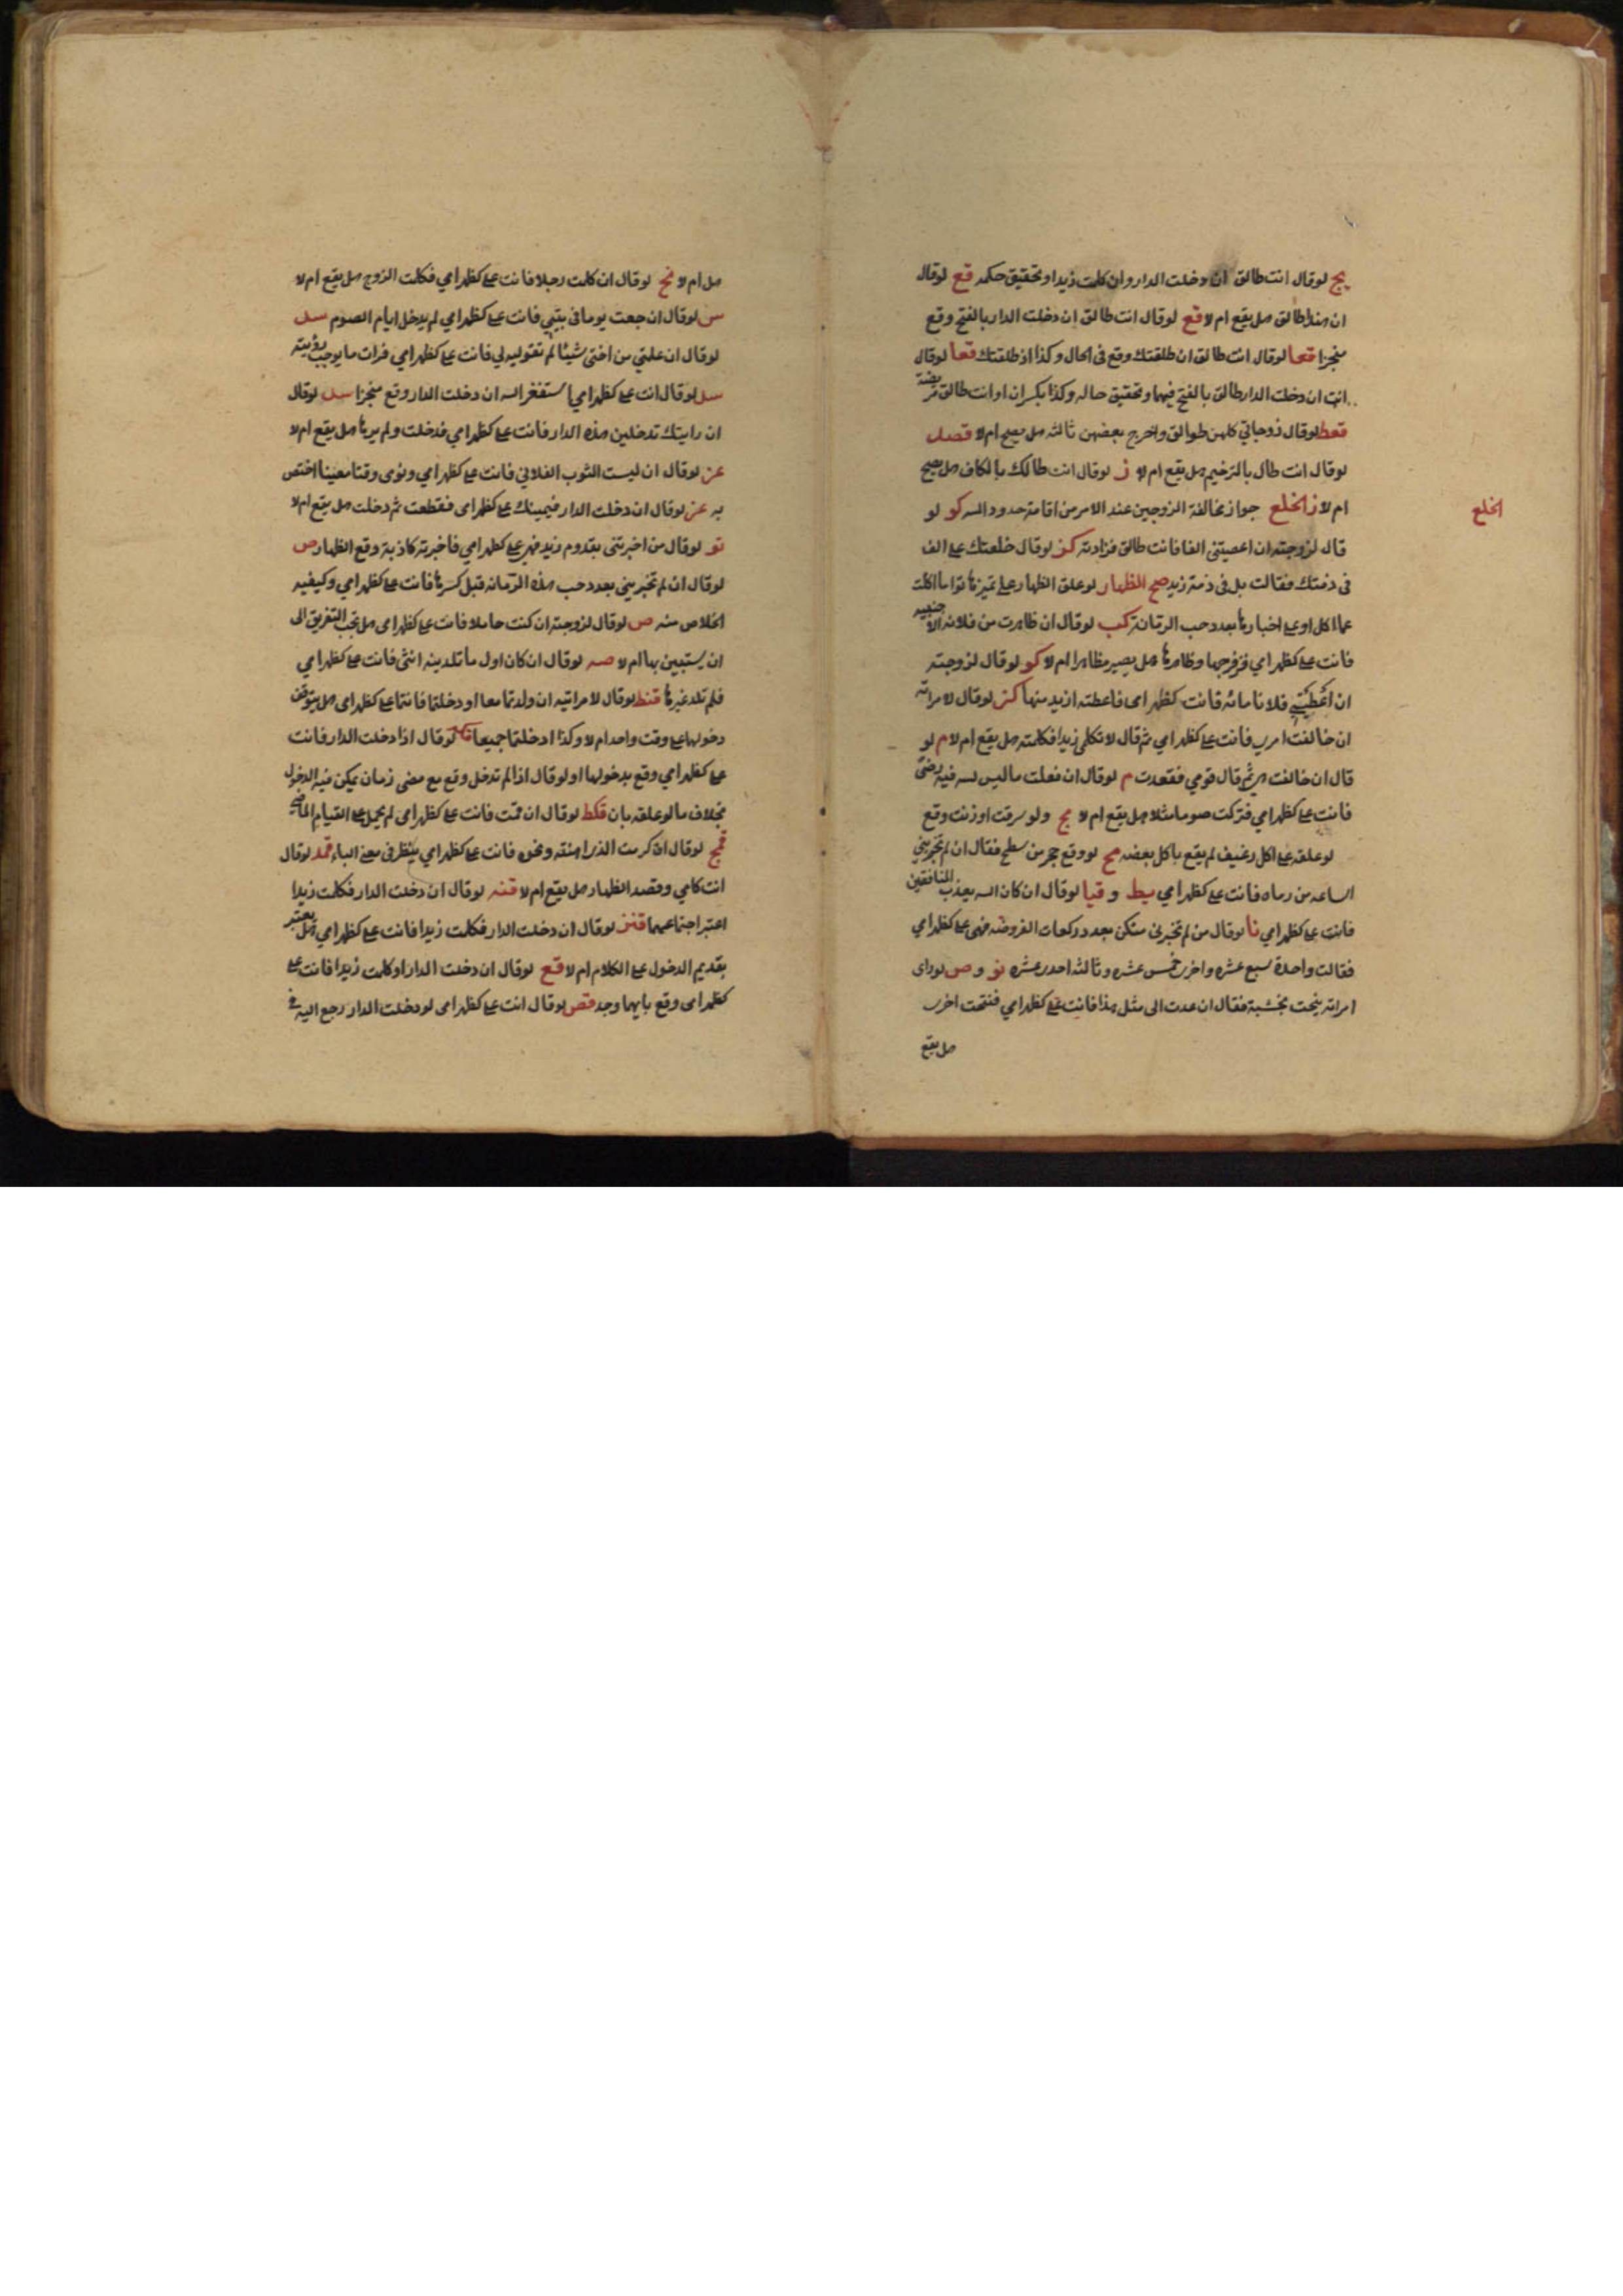 يج لو قال انت طالق ان دخلت الدار وان كلمت زيدا وتحقيق حكمه قع لو قال
ان هندا طالق هل يقع ام لا قع لو قال انت طالق ان دخلت الدار بالفتح وقع
منجزا قعا لو قال انت طالق ان طلقتك وقع في الحال وكذا اذ طلقتك قعا لو قال
انت ان دخلت الدار طالق بالفتح فيهما وتحقيق حاله وكذا بكسر ان او انت طالق مريضة
قعط لو قال زوجاتي كلهن طوالق واخرج بعضهن ثالثه هل يصح ام لا قصل
لو قال انت طال بالترخيم هل يقع ام لا ز لو قال انت طالك بالكاف هل يصح
ام لا ز الخلع جواز مخالفة الزوجين عند الامر من اقامة حدود الله كو لو
الخلع
قال لزوجته ان اعصيتني الفا فانت طالق فزادته كز لو قال خلعتك على الف
في ذمتك فقالت بل في ذمة زيد صح الظهار لو علق الظهار على تميزها نوا ما اكلت
عما اكل او على اخبارها بعدد حب الرتانة كب لو قال ان ظاهرت من فلانه الاجنبيه
فانت على كظهر امي فزوجها وظاهرها هل يصير مظاهرا ام لا كو لو قال لزوجته
ان اعطيتني فلانا مائه فانت كظهر امي فاعطته ازيد منها كز لو قال لامراته
ان خالفت امري فانت على كظهر امي ثم قال لا تكلمي زيدا فكلمته هل يقع ام لا م لو
قال ان خالفت ثم قال قومي فقعدت م لو قال ان فعلت ما ليس لله فيه رضى
فانت على كظهر امي فتركت صوما مثلا هل يقع ام لا مج ولو سرقت او زنت وقع
لو علقه على اكل رغيف لم يقع باكل بعضه مح لو وقع حجر من سطح فقال ان لم تخبريني
الساعه من رماه فانت على كظهر امي يط و قيا لو قال ان كان الله يعذب المنافقين
فانت على كظهر امي نا لو قال من لم تخبرني منكن بعدد ركعات الفروضه فهي على كظهر امي
فقالت واحدة سبع عشره واخرى خمس عشره وثالثه احدى عشره نو و ص لو راى
امراته نيحت بخشبة فقال ان عدت الى مثل هذا فانت على كظهر امي فنتحت اخرى
هل يقع
هل ام لا نح لو قال ان كلمت رجلا فانت على كظهر امي فكلمت الزوج هل يقع ام لا
س لو قال ان جعت يوما في بيتي فانت على كظهر امي لم يدخل ايام الصوم سل
لو قال ان علمتي من اختي شيئا لم تقوليه لي فانت على كظهر امي فرات ما يوجب رؤيته
سل لو قال انت على كظهر امي استغفر الله ان دخلت الدار وقع منجزا سل لو قال
ان رايتك تدخلين هذه الدار فانت على كظهر امي فدخلت ولم يرها هل يقع ام لا
عز لو قال ان لبست الثوب الفلاني فانت على كظهر امي ونوى وقتا معينا اختص
به عز لو قال ان دخلت الدار فيمينك على كظهر امي فقطعت ثم دخلت هل يقع ام لا
نو لو قال من اخبرتني بقدوم زيد فهي على كظهر امي فاخبرته كاذبة وقع الظهار ص
لو قال ان لم تخبريني بعدد حب هذه الرمانه قبل كسرها فانت على كظهر امي وكيفيه
الخلاص منه ص لو قال لزوجته ان كنت حاملا فانت على كظهر امي هل يجب التفريق الى
ان يستبين بها ام لا صه لو قال ان كان اول ما تلدينه انثى فانت على كظهر امي
فلم تلد غيرها قنط لو قال لامراتيه ان ولدتما معا او دخلتما فانتما على كظهر امي هل يتوقف
دخولهما على وقت واحد ام لا وكذا ادخلتما جميعا لو قال اذا دخلت الدار فانت
على كظهر امي وقع بدخولها او لو قال اذا لم تدخل وقع مع مضي زمان يمكن فيه الدخول
بخلاف ما لو علقه بان قكط لو قال ان قمت فانت على كظهر امي لم يحمل على القيام الماضي
قمج لو قال ان كرمت الذرا منته ونحوه فانت على كظهر امي ينظر في معنى الباء قمد لو قال
انت كامي وقصد الظهار هل يقع ام لا قنه لو قال ان دخلت الدار فكلمت زيدا
اعتبر اجتماعهما قنز لو قال ان دخلت الدار فكلمت زيدا فانت على كظهر امي هل يعتبر
بقديم الدخول على الكلام ام لا قع لو قال ان دخلت الدار او كلمت زيدا فانت على
كظهر امي وقع بايهما وجد قص لو قال انت على كظهر امي لو دخلت الدار رجع اليه في